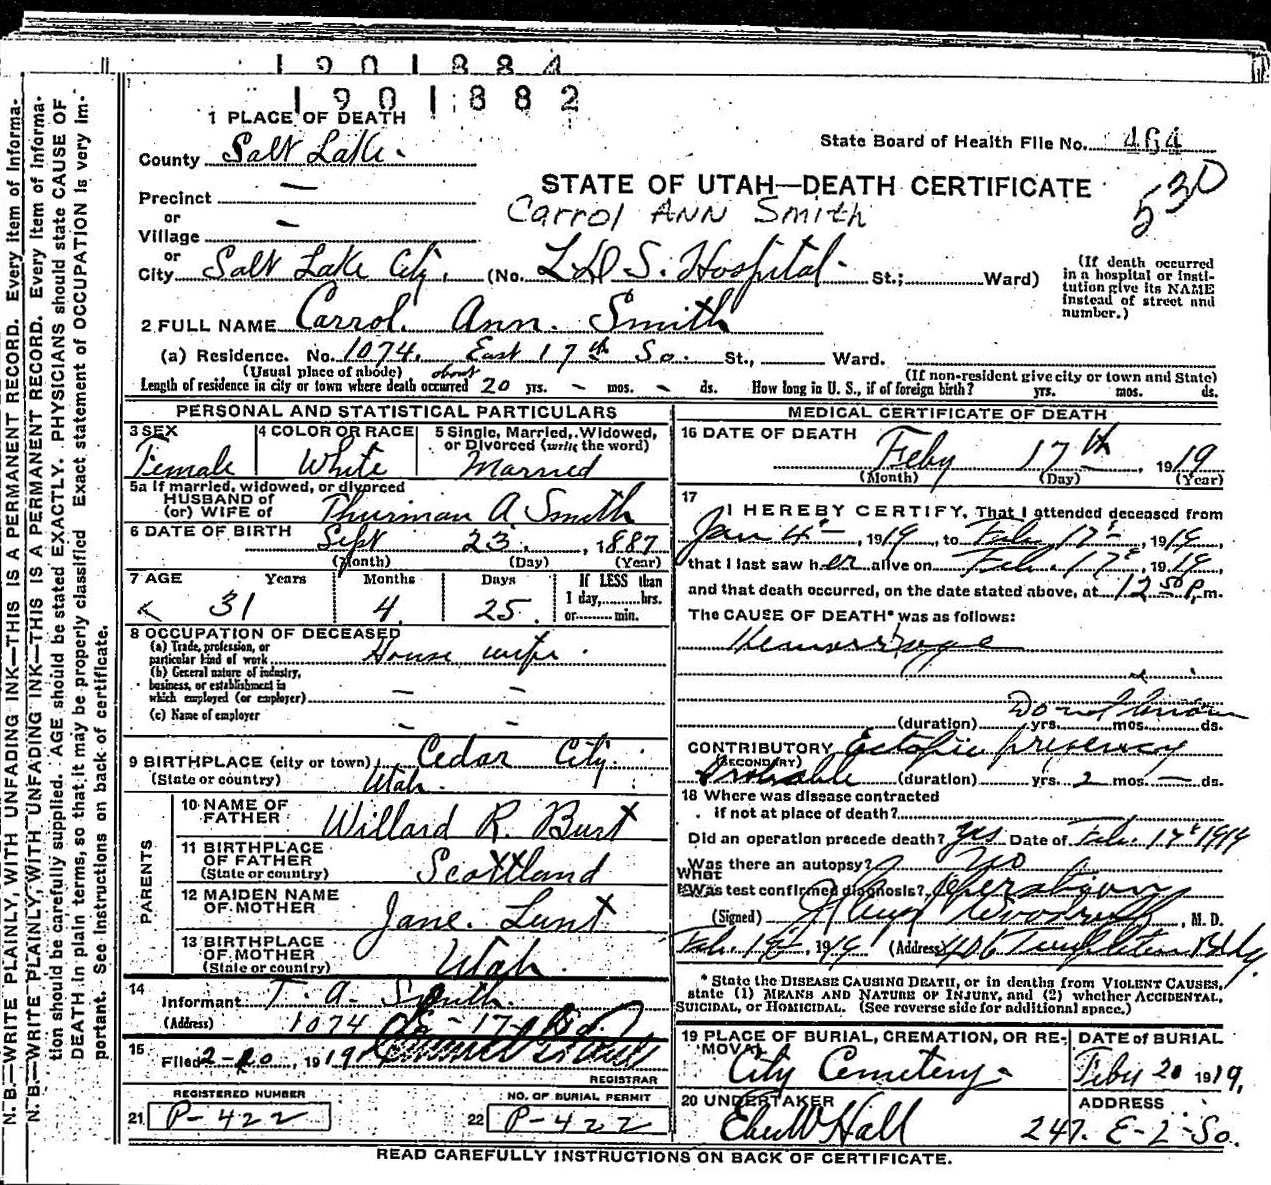 1901884
1901882
1 PLACE OF DEATH
State Board of Health File No. 464
County Salt Lake.
STATE OF UTAH—DEATH CERTIFICATE
530
Precinct —
Carrol ANN Smith
or
Village —
or
City Salt Lake City, (No. L.D.S. Hospital St.; Ward)
(If death occurred in a hospital or institution give its NAME instead of street and number.)
2 FULL NAME Carrol Ann Smith
(a) Residence. No. 1074. East 17th So. St., Ward.
(Usual place of abode) (If non-resident give city or town and State)
Length of residence in city or town where death occurred about 20 yrs. - mos. - ds. How long in U. S., if of foreign birth? yrs. mos. ds.
PERSONAL AND STATISTICAL PARTICULARS
3 SEX
Female
4 COLOR OR RACE
White
5 Single, Married, Widowed, or Divorced (write the word)
Married
5a If married, widowed, or divorced
HUSBAND of
(or) WIFE of Thurman A Smith
6 DATE OF BIRTH Sept 23, 1887
(Month) (Day) (Year)
7 AGE Years Months Days If LESS than
31 4 25 1 day, hrs.
or min.
8 OCCUPATION OF DECEASED
(a) Trade, profession, or
particular kind of work House wife.
(b) General nature of industry,
business, or establishment in
which employed (or employer) — —
(c) Name of employer — —
9 BIRTHPLACE (city or town) Cedar City.
(State or country) Utah.
PARENTS
10 NAME OF FATHER Willard R. Burt
11 BIRTHPLACE OF FATHER (State or country) Scottland
12 MAIDEN NAME OF MOTHER Jane Lunt
13 BIRTHPLACE OF MOTHER (State or country) Utah
14 Informant T. A. Smith.
(Address) 1074 So-17-
15 Filed 2-20, 1919
REGISTRAR
REGISTERED NUMBER
21 P-422
NO. OF BURIAL PERMIT
22 P-422
MEDICAL CERTIFICATE OF DEATH
16 DATE OF DEATH
Feby 17th, 1919
(Month) (Day) (Year)
17 I HEREBY CERTIFY, That I attended deceased from
Jan 4, 1919, to Feb. 17, 1919,
that I last saw her alive on Feb. 17, 1919,
and that death occurred, on the date stated above, at 12 50 P.m.
The CAUSE OF DEATH* was as follows:
Hemorrhage
Do not know
(duration) yrs. mos. ds.
CONTRIBUTORY Ectopic pregnancy
(SECONDARY)
Probable (duration) yrs. 2 mos. — ds.
18 Where was disease contracted
if not at place of death?
Did an operation precede death? yes Date of Feb. 17 1919
Was there an autopsy? No
What
Was test confirmed diagnosis? Operation
(Signed) , M. D.
Feb. 18 1919 (Address) 406 Templeton Bldg.
* State the DISEASE CAUSING DEATH, or in deaths from VIOLENT CAUSES,
state (1) MEANS AND NATURE OF INJURY, and (2) whether ACCIDENTAL,
SUICIDAL, or HOMICIDAL. (See reverse side for additional space.)
19 PLACE OF BURIAL, CREMATION, OR REMOVAL
City Cemetery
DATE of BURIAL
Feby 20 1919,
20 UNDERTAKER
Eber W Hall
ADDRESS
247. E-2-So.
READ CAREFULLY INSTRUCTIONS ON BACK OF CERTIFICATE.
N. B.—WRITE PLAINLY, WITH UNFADING INK—THIS IS A PERMANENT RECORD. Every item of informa-
N. B.—WRITE PLAINLY, WITH UNFADING INK—THIS IS A PERMANENT RECORD. Every item of informa-
tion should be carefully supplied. AGE should be stated EXACTLY. PHYSICIANS should state CAUSE OF
DEATH in plain terms, so that it may be properly classified Exact statement of OCCUPATION is very im-
portant. See instructions on back of certificate.